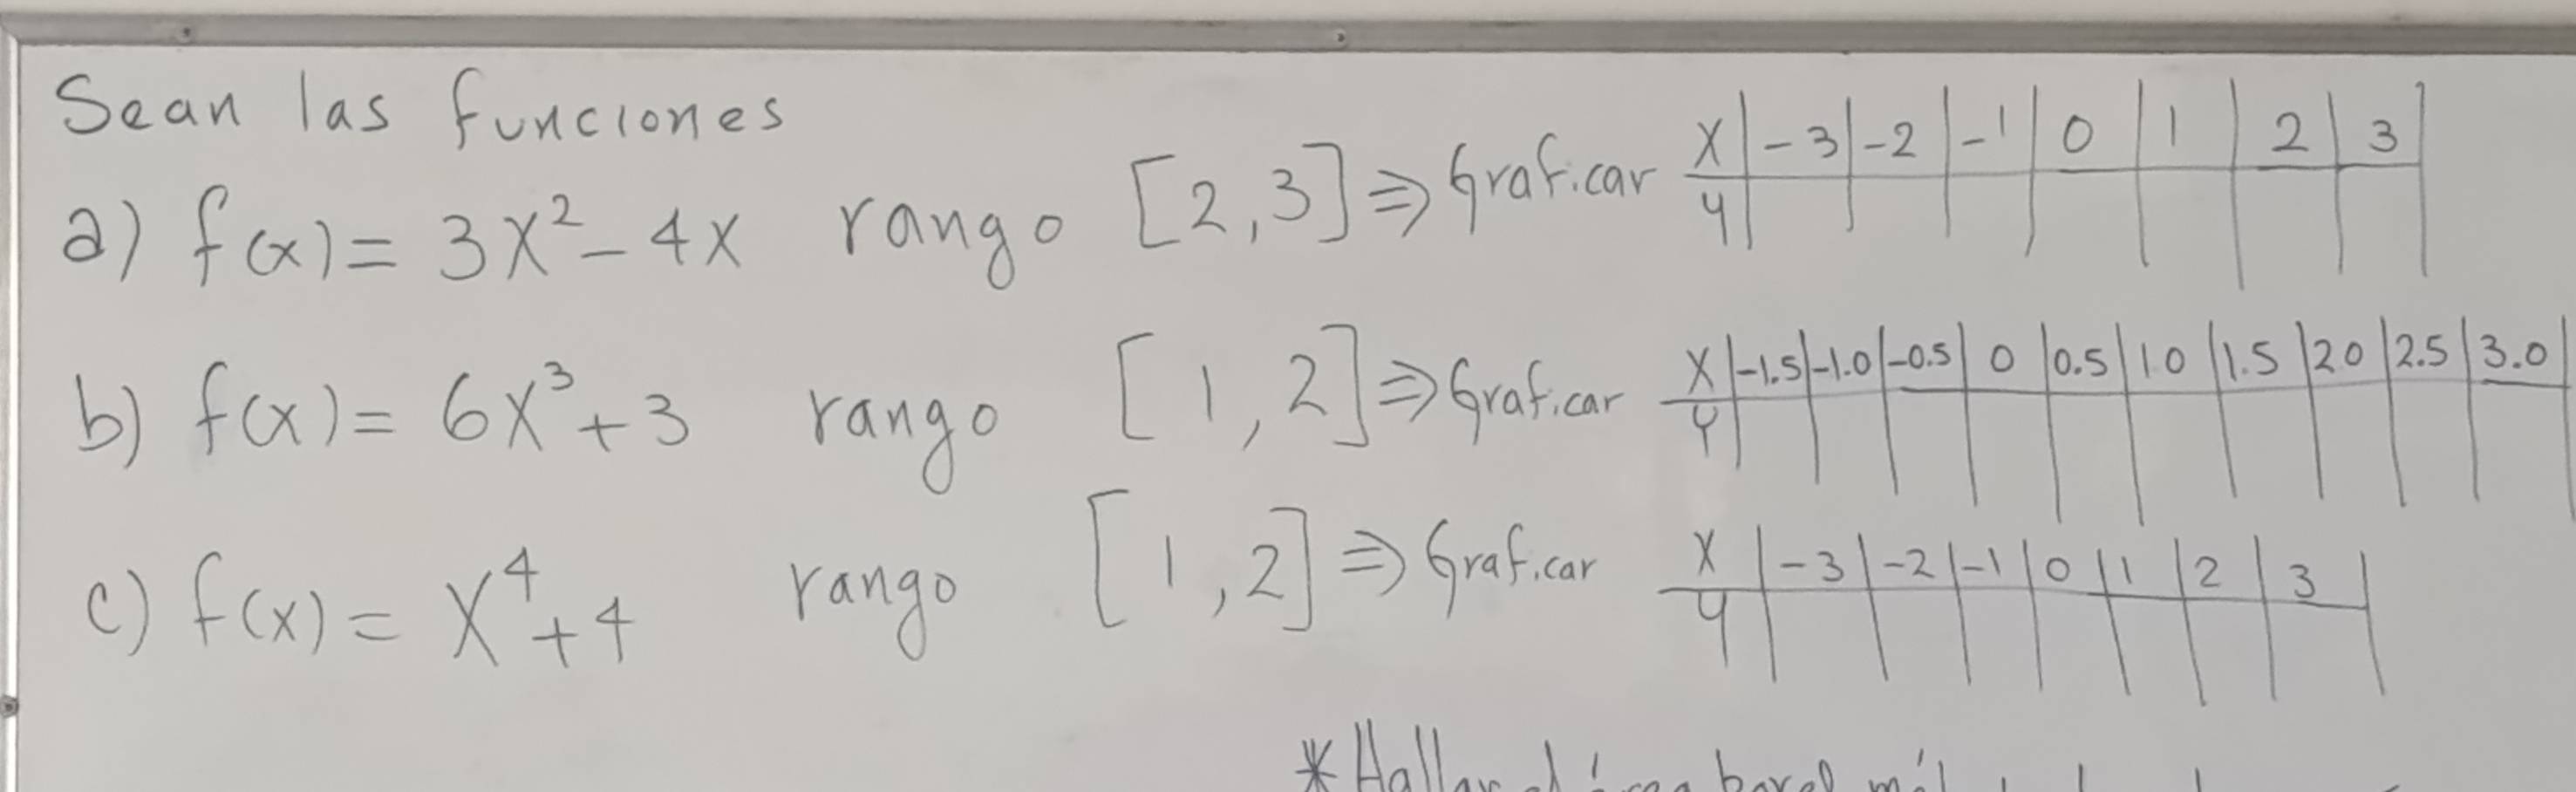 Sean las funciones
a) f(x) = 3x² - 4x rango [2,3] ⇒ Graficar x | -3 | -2 | -1 | 0 | 1 | 2 | 3
y
b) f(x) = 6x³ + 3 rango [1,2] ⇒ Graficar x | -1.5 | -1.0 | -0.5 | 0 | 0.5 | 1.0 | 1.5 | 2.0 | 2.5 | 3.0
y
c) f(x) = x⁴ + 4 rango [1,2] ⇒ Graficar x | -3 | -2 | -1 | 0 | 1 | 2 | 3
y
* Hallar el área